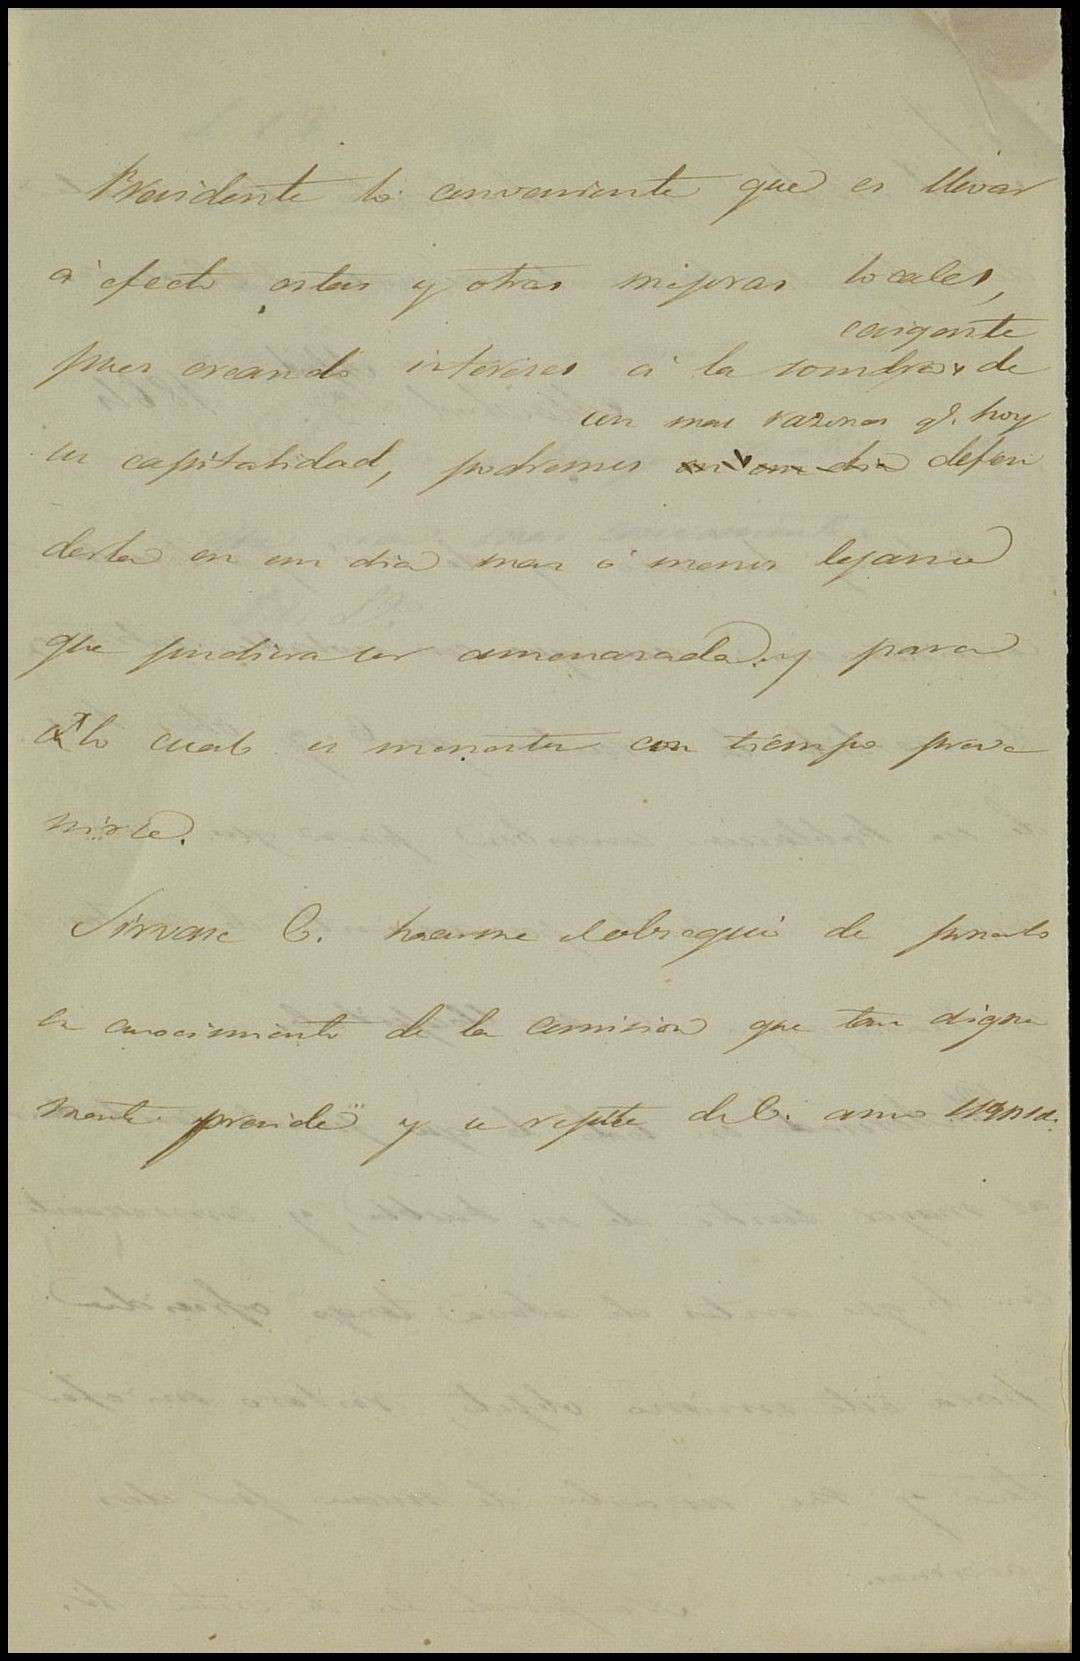 Presidente lo conveniente que es llevar
á efecto estas y otras mejoras locales,
pues creando intereses á la sombra de
con mas razones q. hoy
su capitalidad, podremos en un dia defen
derla en un dia mas ó menos lejano
que pudiera ser amenazada y para
lo cual es menester con tiempo preve
nirse.
Sirvase V. hacerme el obsequio de ponerlo
en conocimiento de la comision que tan digna
mente preside y se repite de V. amo